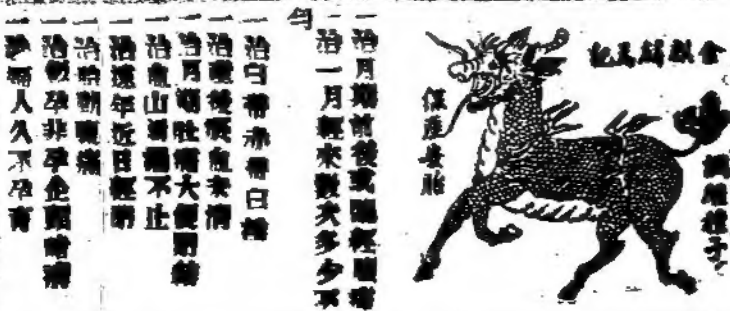 金麒麟爲記
調經種子
保產安胎
一治月期前後或臨經期痛
一治一月經來數次多少不
勻
一治白帶赤帶白淫
一治產後瘀血未清
一治月期肚痛大便閉結
一治血山崩漏不止
一治遠年近日經閉
一治腹痛
一治孕非孕企頭暗病
一治婦人久不孕育